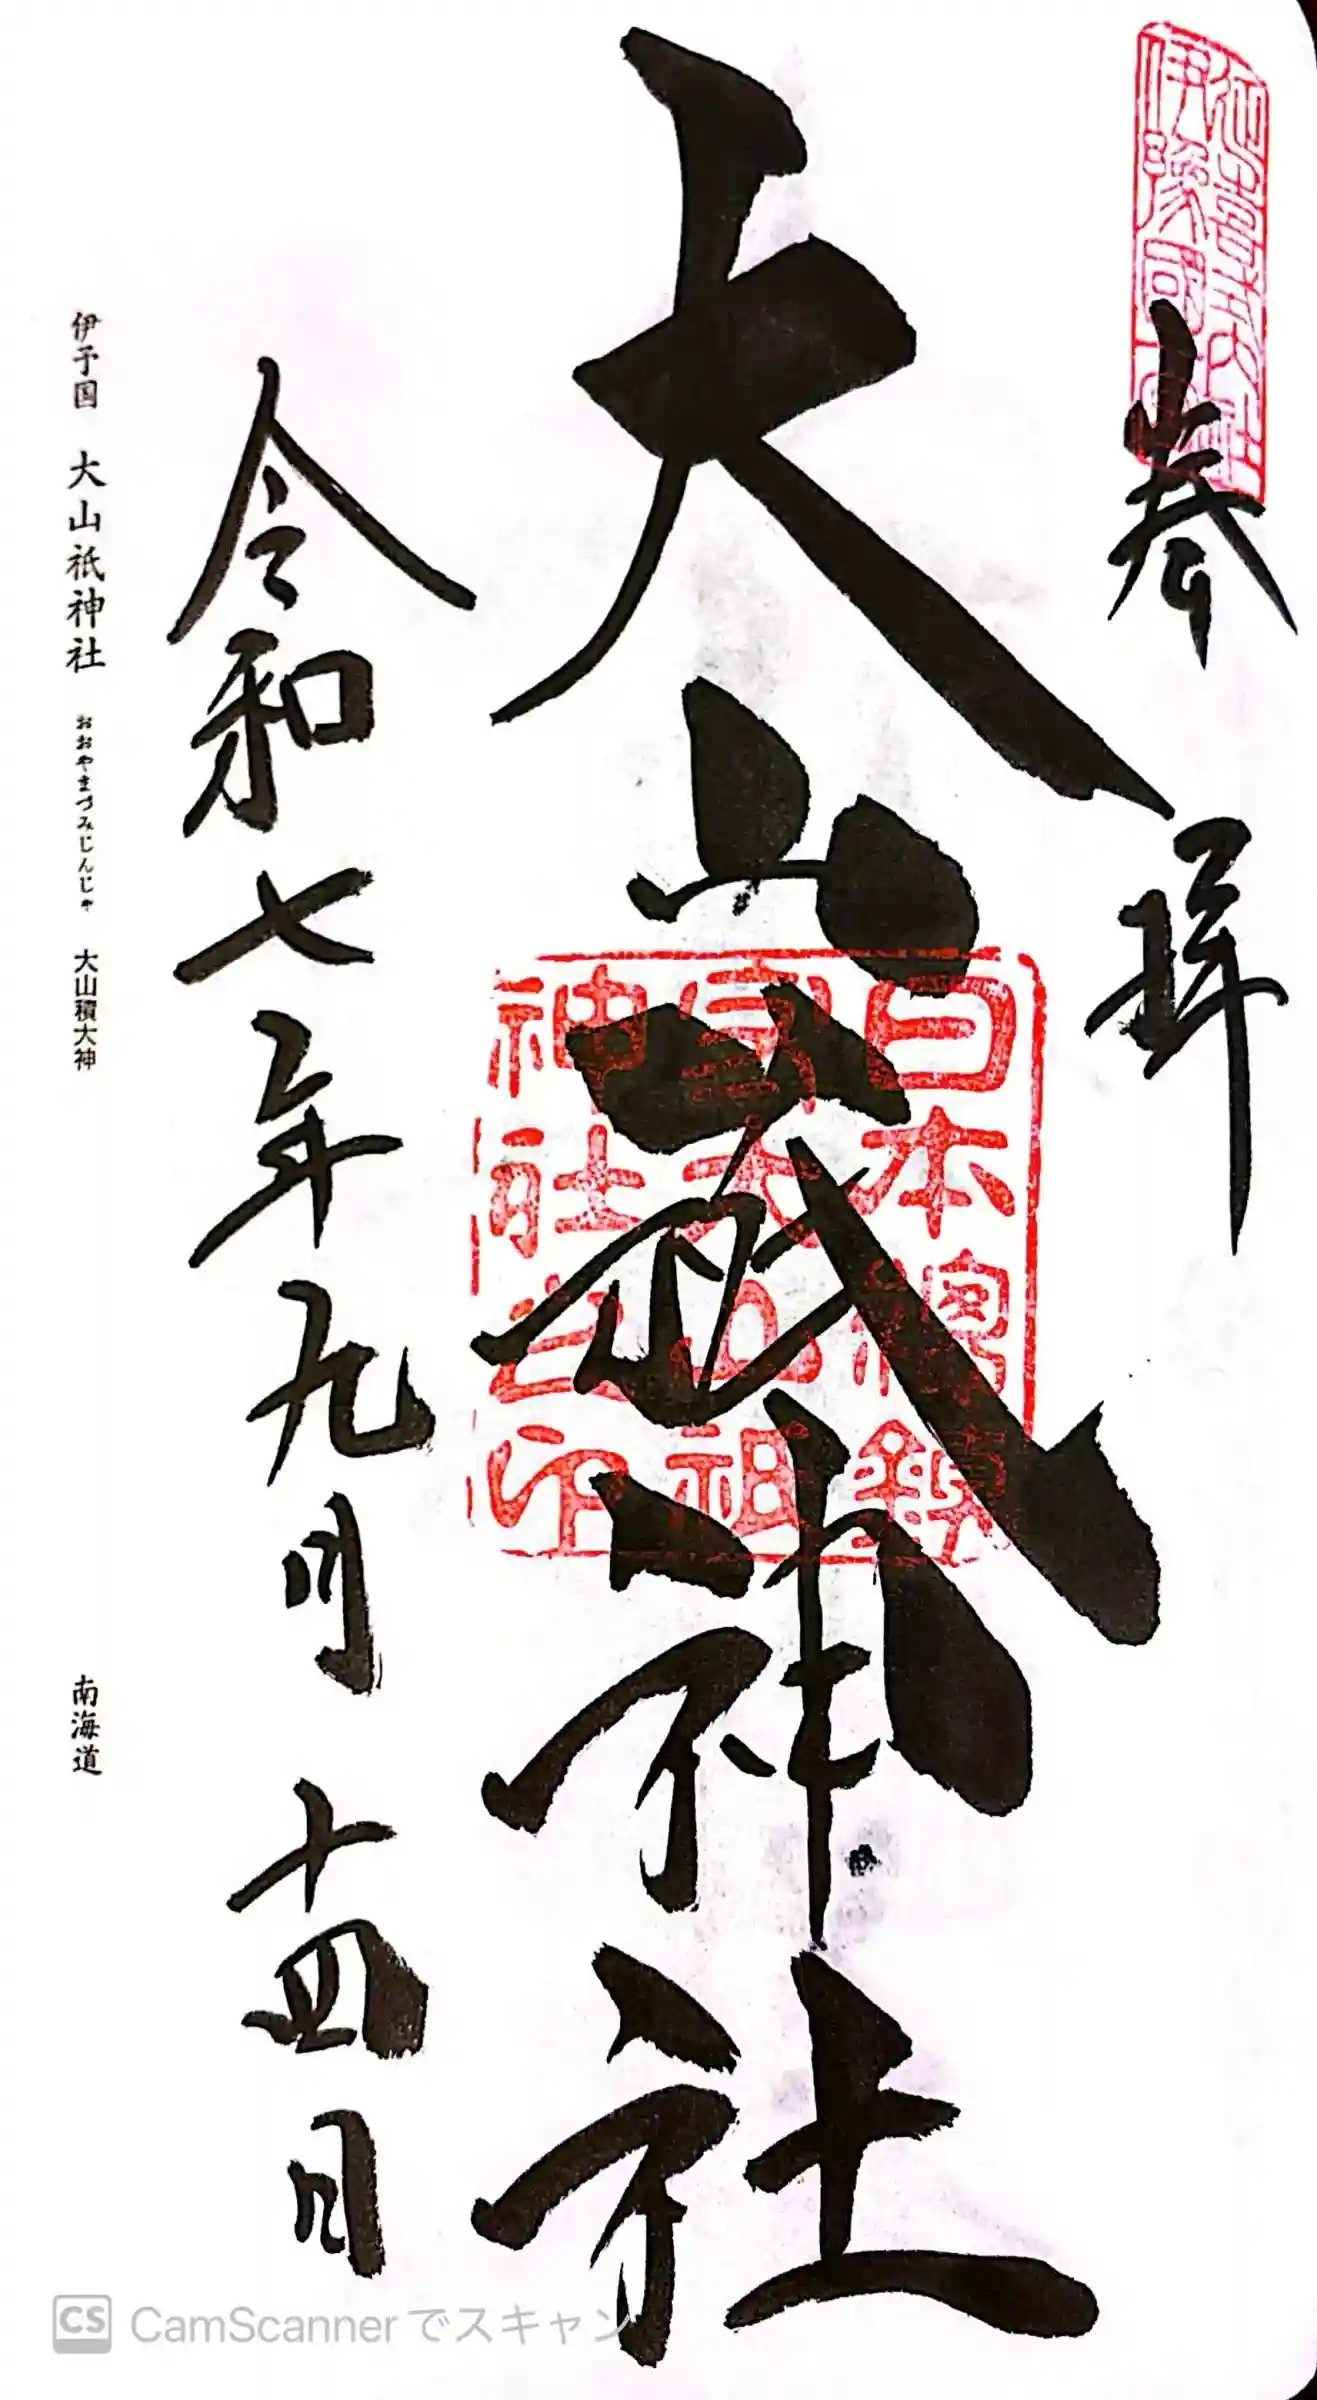 延喜式内社
伊豫國一宮
奉拝
大山祇神社
日本總鎮
守大山祖
神社之印
令和七年九月十四日
伊予国 大山祇神社 おおやまづみじんじゃ 大山積大神 南海道
CS CamScannerでスキャン